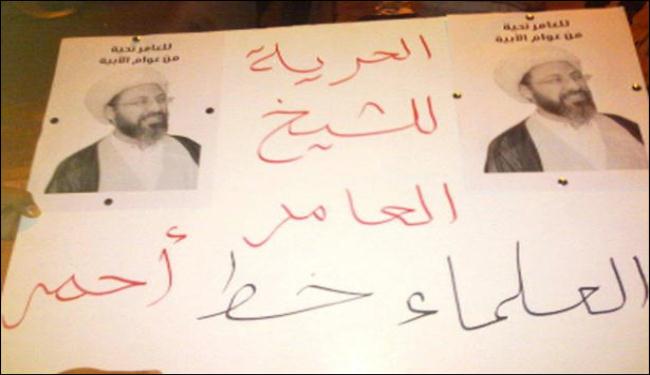 للعامر تحية
من عوام الأبية
للعامر تحية
من عوام الأبية
الحرية
للشيخ
العامر
العلماء خط أحمر